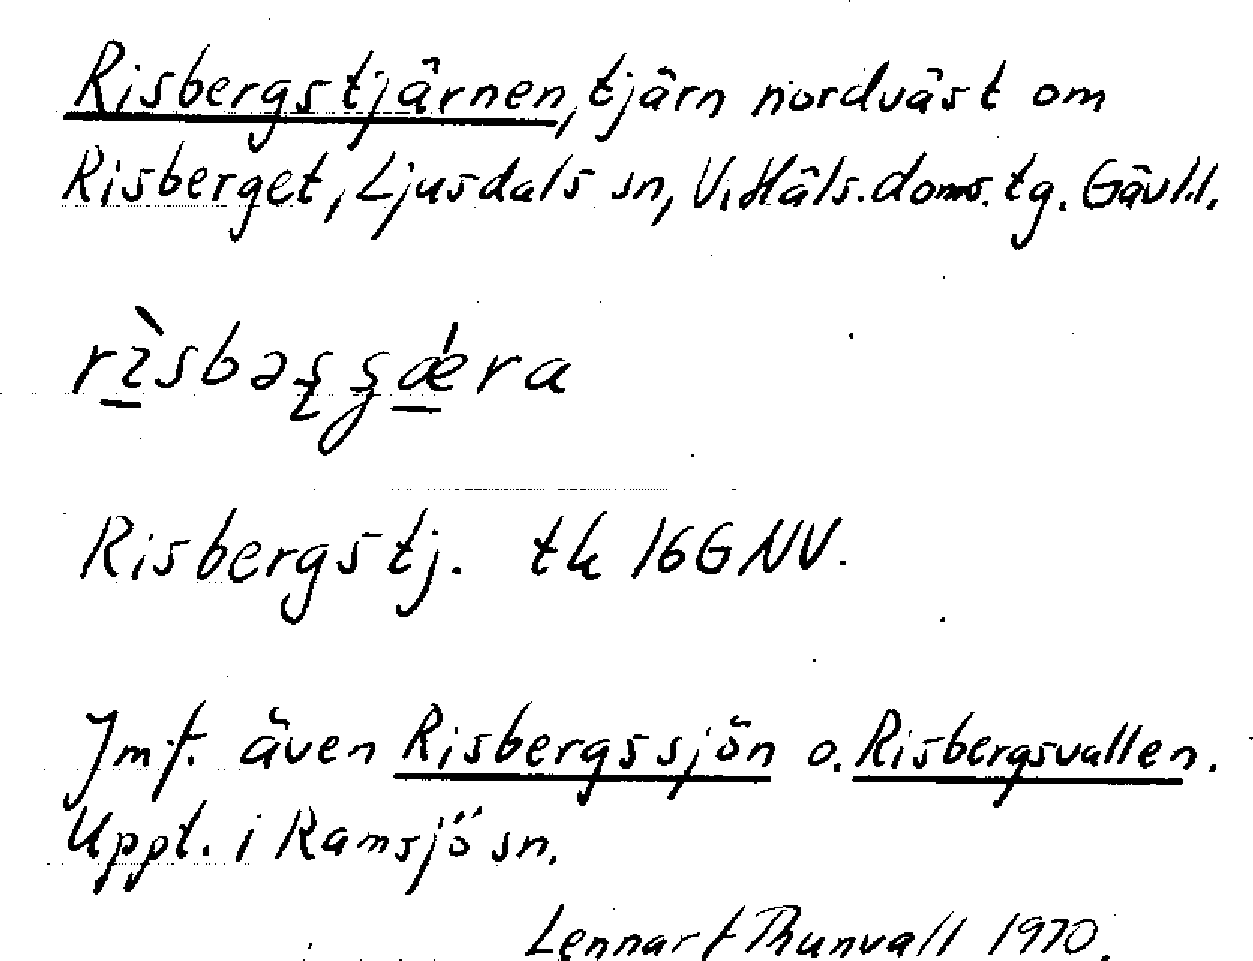 Risbergstjärnen, tjärn nordväst om
Risberget, Ljusdals sn, V. Häls. doms. tg. Gävl.l.
Risbergstj. tk 16G NV.
Jmf. även Risbergssjön o. Risbergsvallen.
Uppt. i Ramsjö sn.
Lennart Thunvall 1970.